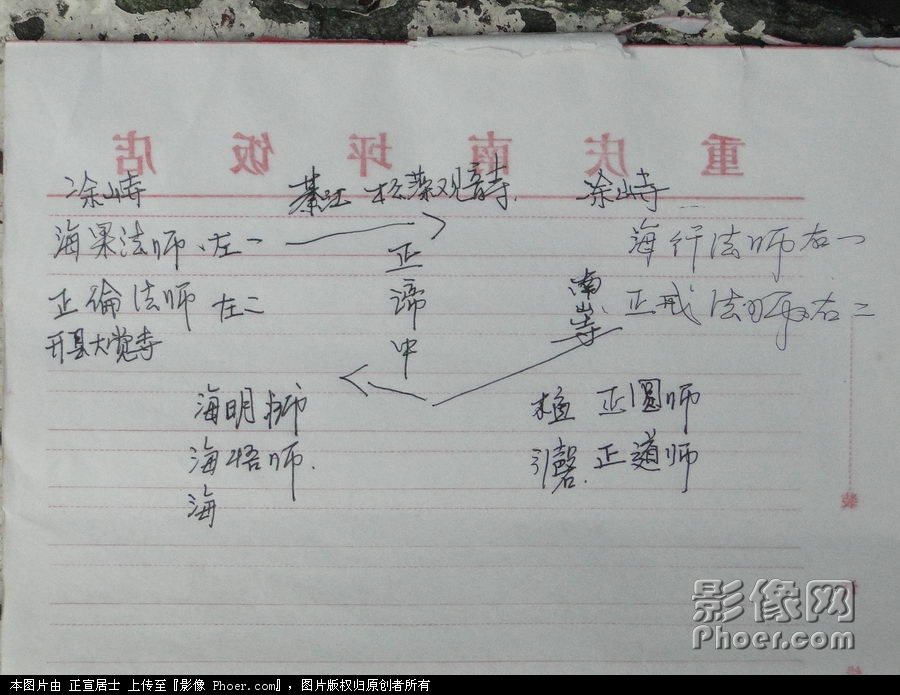 重庆南坪饭店
涂山寺 綦江 松藻观音寺. 涂山寺
海果法师、左一 海行法师右一
正
正倫法师 左二 谛 南山寺 正戒法师右二
开县大觉寺 中
海明师 正圆师
海悟师. 引磬. 正道师
海
装
影像网
Phoer.com
本图片由 正宣居士 上传至『影像 Phoer.com』，图片版权归原创者所有